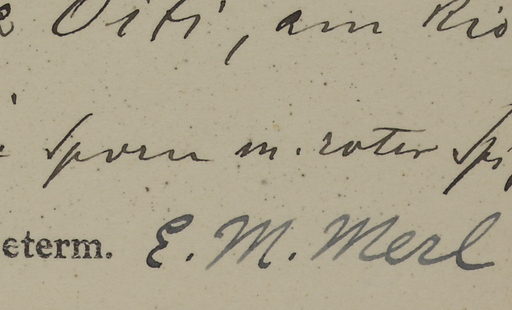 Oiti, am Rio
Sporn m. roter Spi
eterm. E. M. Merl